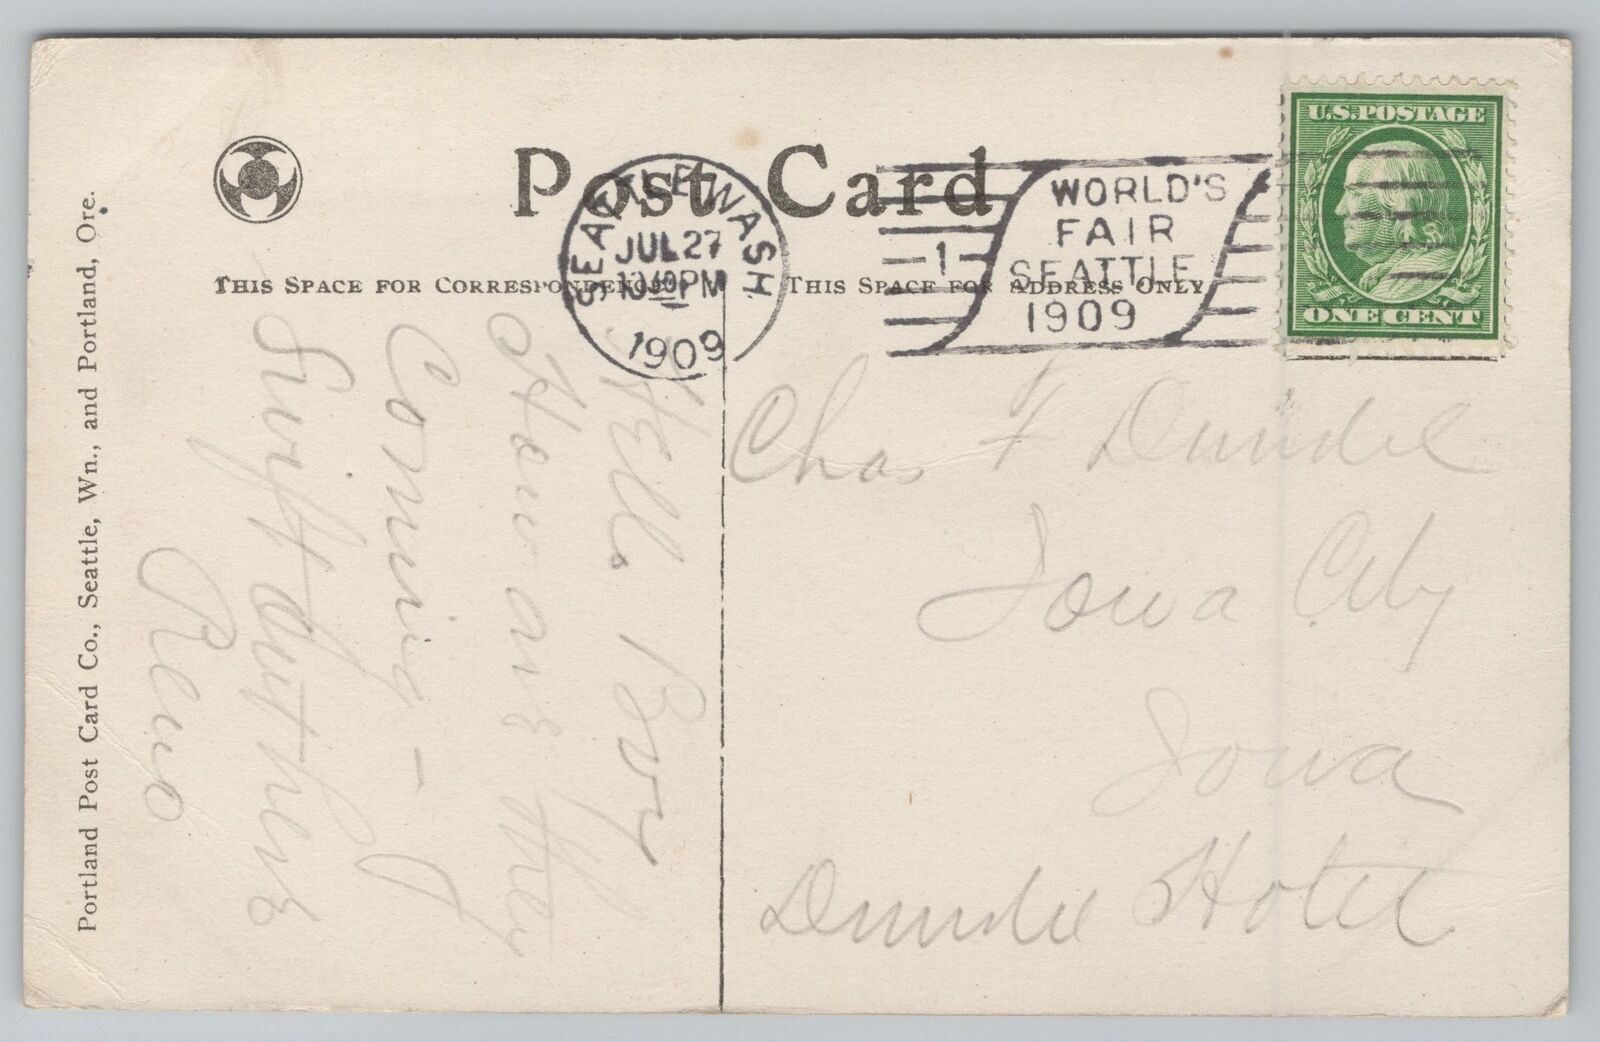 Post Card
THIS SPACE FOR CORRESPONDENCE
THIS SPACE FOR ADDRESS ONLY
SEATTLE, WASH.
JUL 27
PM
1909
1
WORLD'S
FAIR
SEATTLE
1909
U.S. POSTAGE
ONE CENT
Portland Post Card Co., Seattle, Wn., and Portland, Ore.
Hello Boy
How are they
Coming –
Swift out here
Chas F Dundee
Iowa City
Iowa
Dundee Hotel